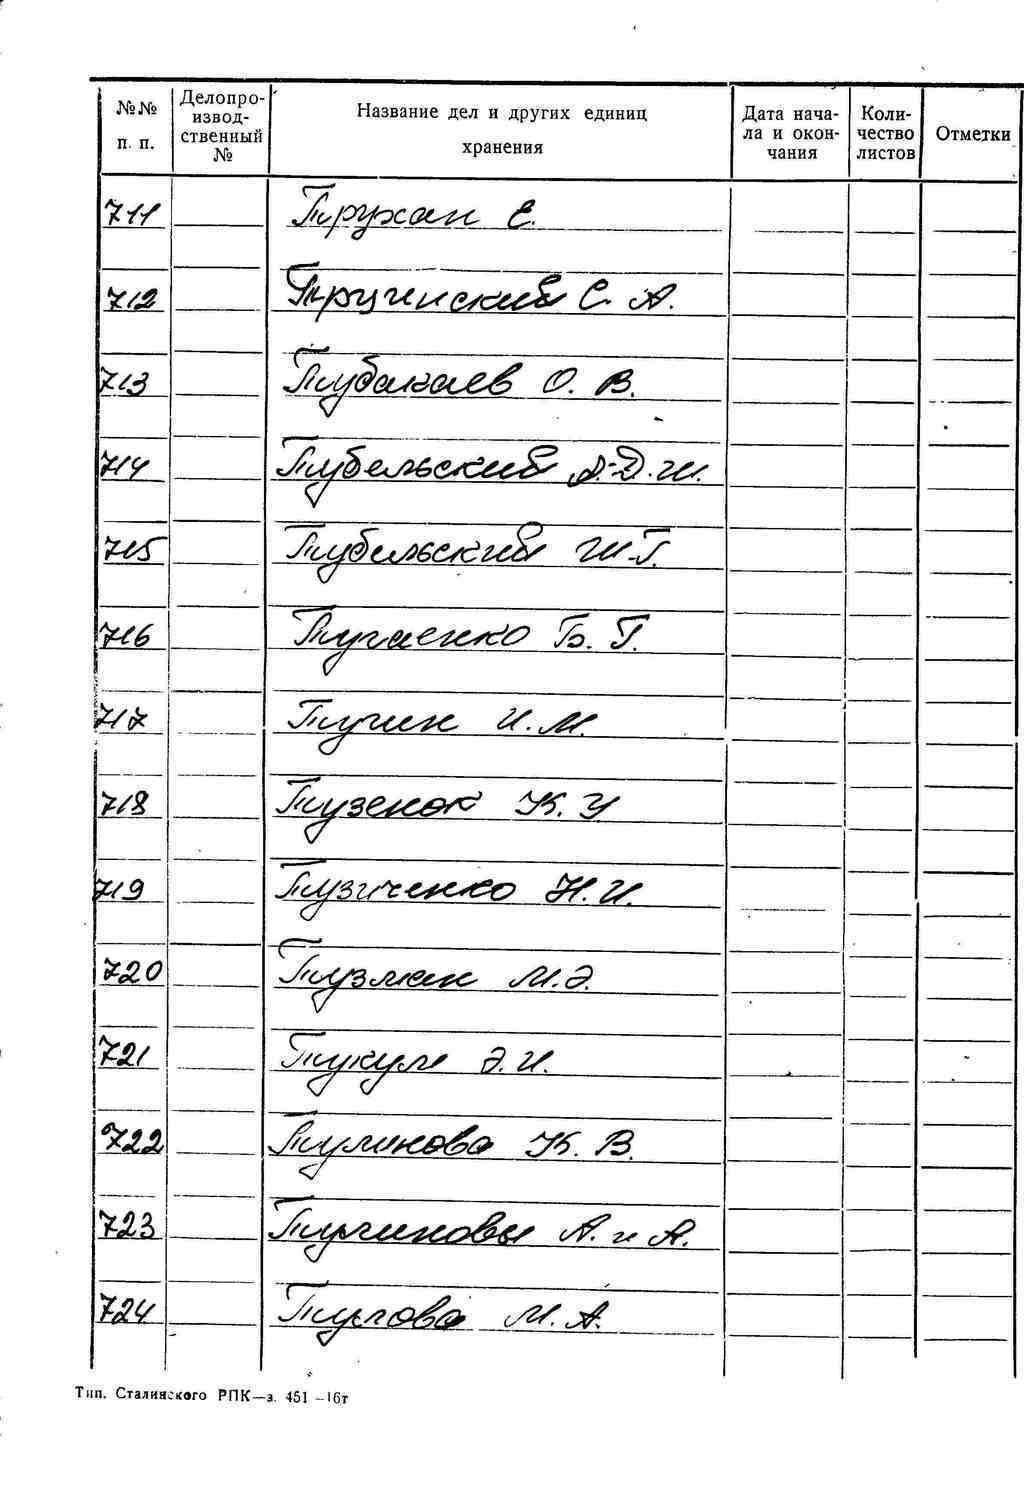 №№ п. п.
Делопроизводственный №
Название дел и других единиц хранения
Дата начала и окончания
Количество листов
Отметки
711 Трухан Е.
712 Тручинский С. А.
713 Тубакаев О. В.
714 Тубельский Л.-Д.Ш.
715 Тубельский Ш-Г.
716 Тугаенко Б. Г.
717 Тугин И.М.
718 Тузенок К.У
719 Тузиченко Н.И.
720 Тузман М.Э.
721 Э.И.
722 Тулинова К. В.
723 Тулиновы А. и А.
724 М. А.
Тип. Сталинского РПК—з. 451 –16т